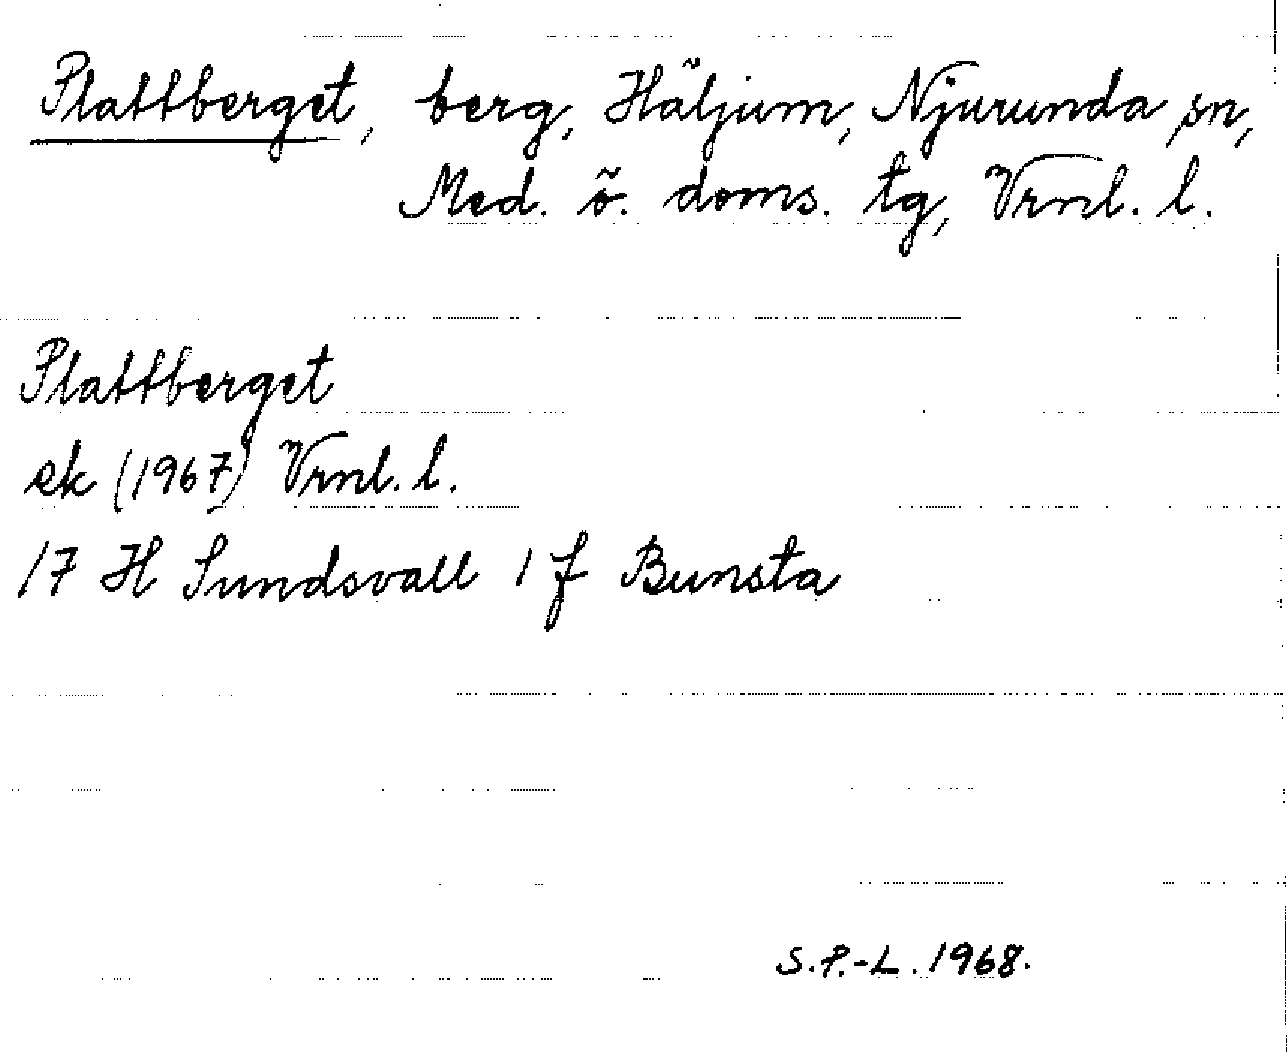 Plattberget, berg, Häljum, Njurunda sn,
Med. ö. doms. tg, Vrnl. l.
Plattberget
ek (1967) Vrnl. l.
17 H Sundsvall 1 f Bunsta
S.P.-L. 1968.